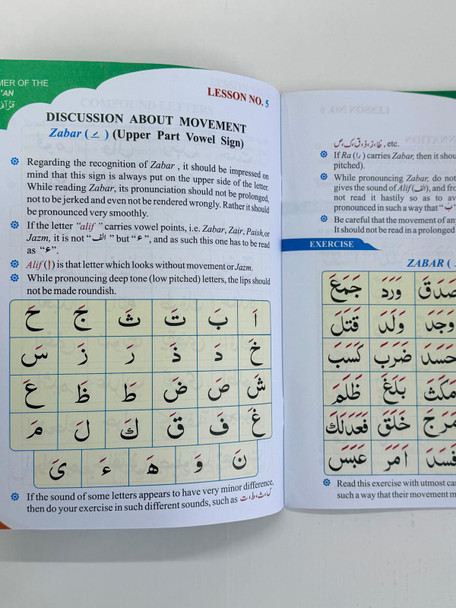 MER OF THE
LESSON NO. 5
DISCUSSION ABOUT MOVEMENT
Zabar ( ـَ ) (Upper Part Vowel Sign)
Regarding the recognition of Zabar , it should be impressed on
mind that this sign is always put on the upper side of the letter.
While reading Zabar, its pronunciation should not be prolonged,
not to be jerked and even not be rendered wrongly. Rather it should
be pronounced very smoothly.
If the letter "alif " carries vowel points, i.e. Zabar, Zair, Paish, or
Jazm, it is not “ الف ” but “ ء ”, and as such this one has to be read
as “ء”.
Alif (ا) is that letter which looks without movement or Jazm.
While pronouncing deep tone (low pitched) letters, the lips should
not be made roundish.
اَ بَ تَ ثَ جَ حَ
خَ دَ ذَ رَ زَ سَ
شَ صَ ضَ طَ ظَ عَ
غَ فَ قَ كَ لَ مَ
نَ وَ هَ ءَ یَ
If the sound of some letters appears to have very minor difference,
then do your exercise in such different sounds, such as
LESSON NO.
etc.
If Ra (را) carries Zabar, then it shou
pitched).
While pronouncing Zabar, do not
gives the sound of Alif (الف), and fro
not read it hastily so as to av
pronounced in such a way that “
Be careful that the movement of an
It should not be read in a prolonged
EXERCISE
ZABAR (
صَدَقَ وَرَدَ جَمَعَ
وَجَدَ وَلَدَ قَتَلَ
حَسَدَ ضَرَبَ كَسَبَ
مَكَثَ بَلَغَ ظَلَمَ
مَرَجَ خَلَقَ فَعَدَلَكَ
فَسَدَ اَمَرَ عَبَسَ
Read this exercise with utmost car
such a way that their movement m